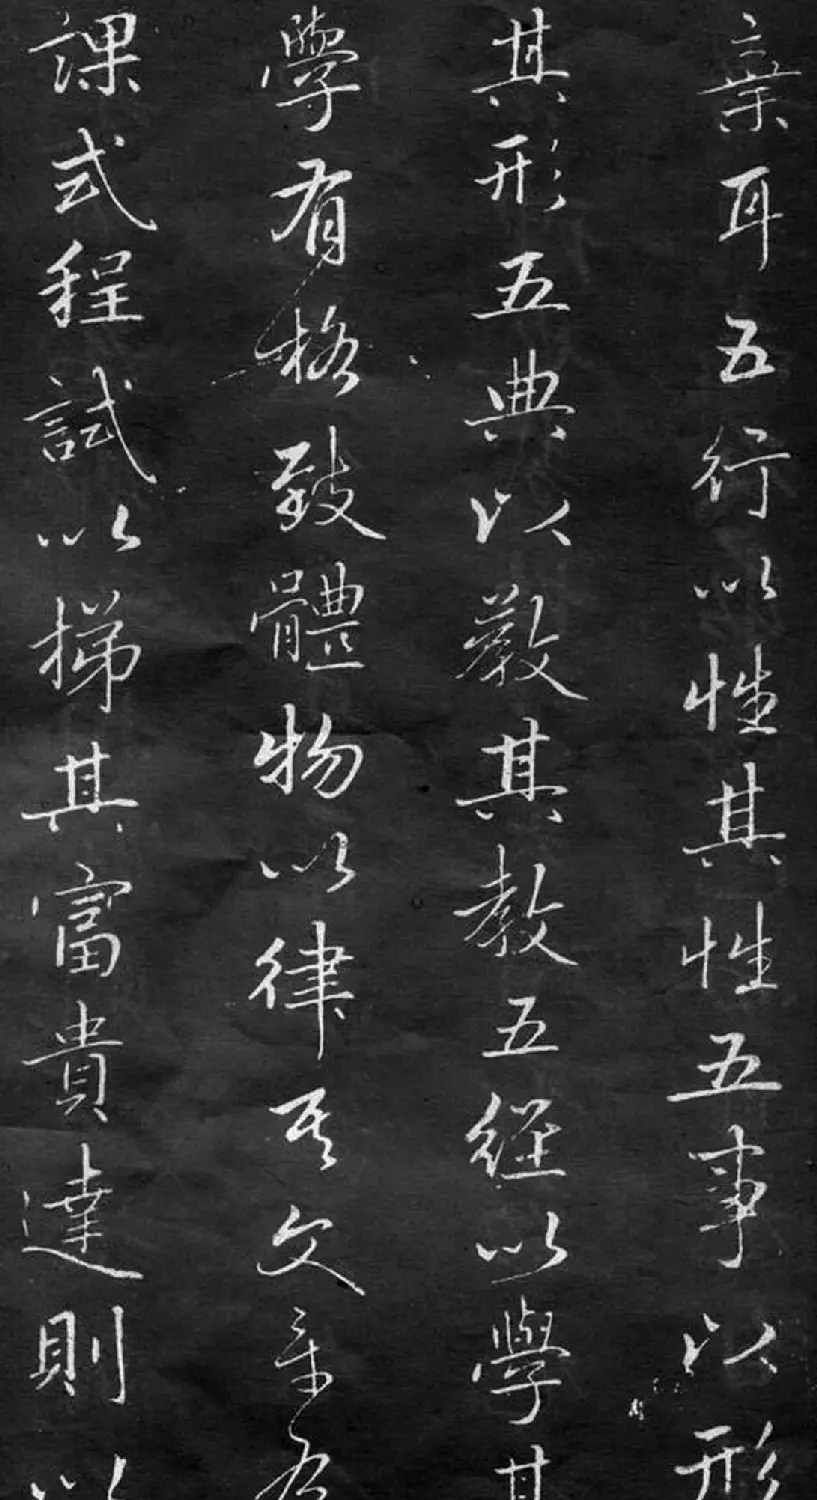 棄耳五行以性其性五事以形
其形五典以教其教五經以學其
學有格致體物以律其文章有
課式程試以梯其富貴達則以